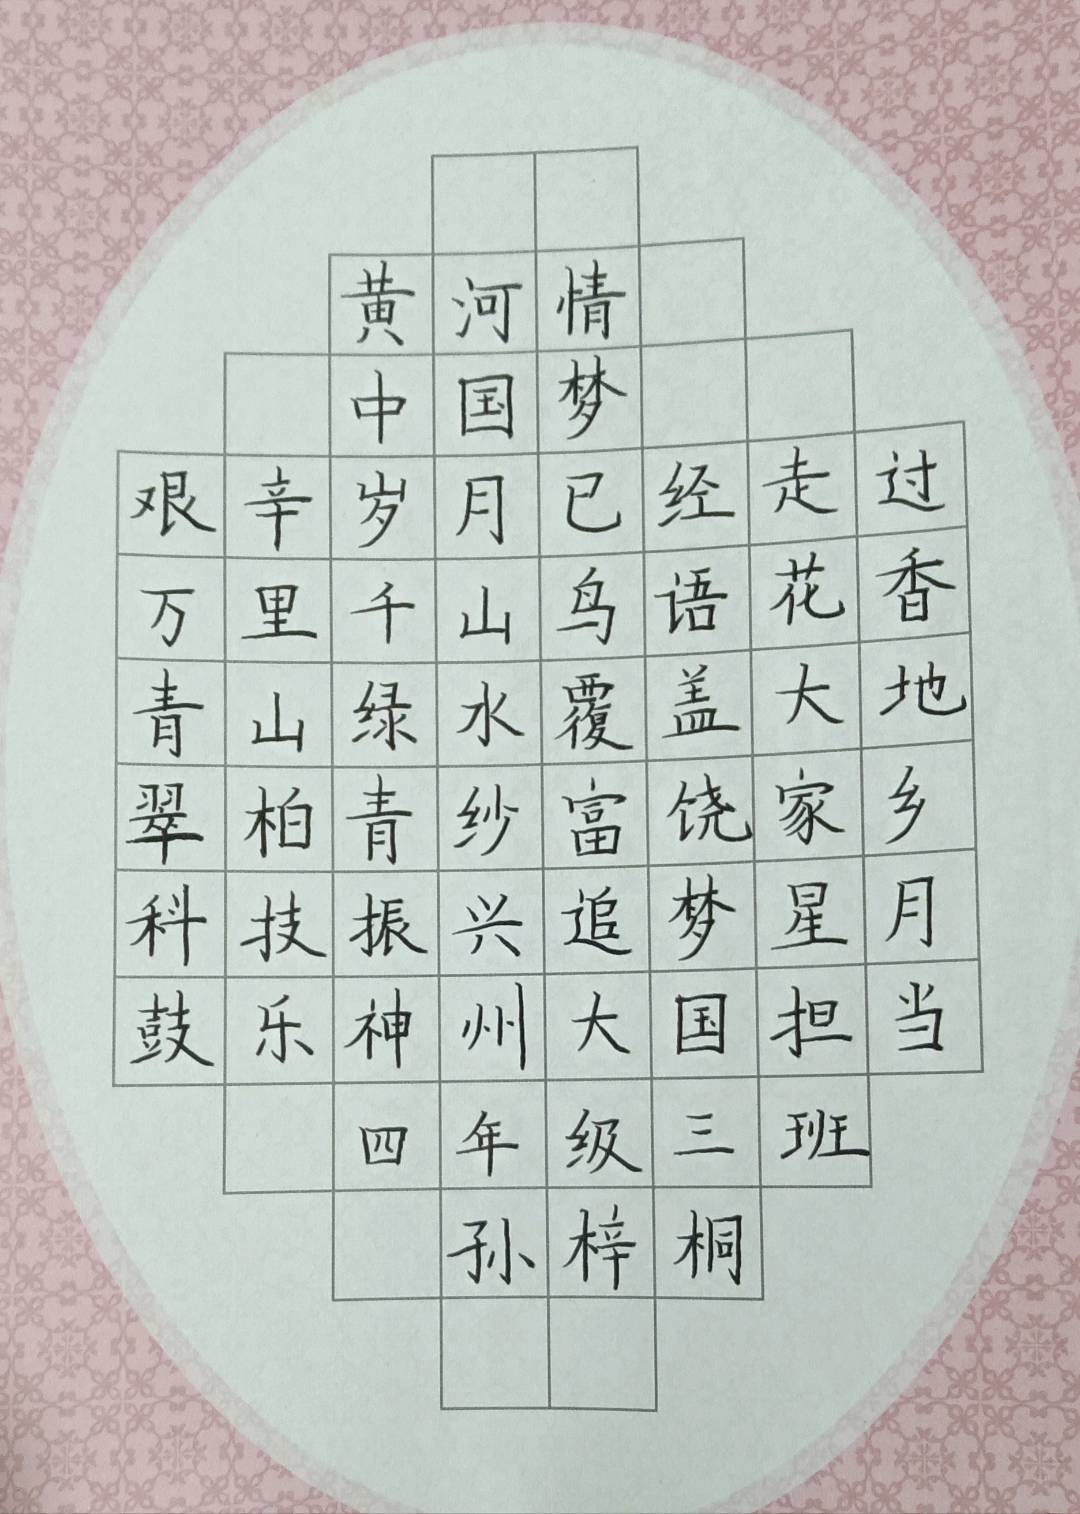 黄河情
中国梦
艰辛岁月已经走过
万里千山鸟语花香
青山绿水覆盖大地
翠柏青纱富饶家乡
科技振兴追梦星月
鼓乐神州大国担当
四年级三班
孙梓桐